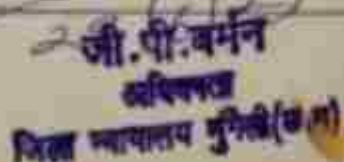 जी.पी.बर्मन
अधिवक्ता
जिला न्यायालय मुंगेली(छ.ग)